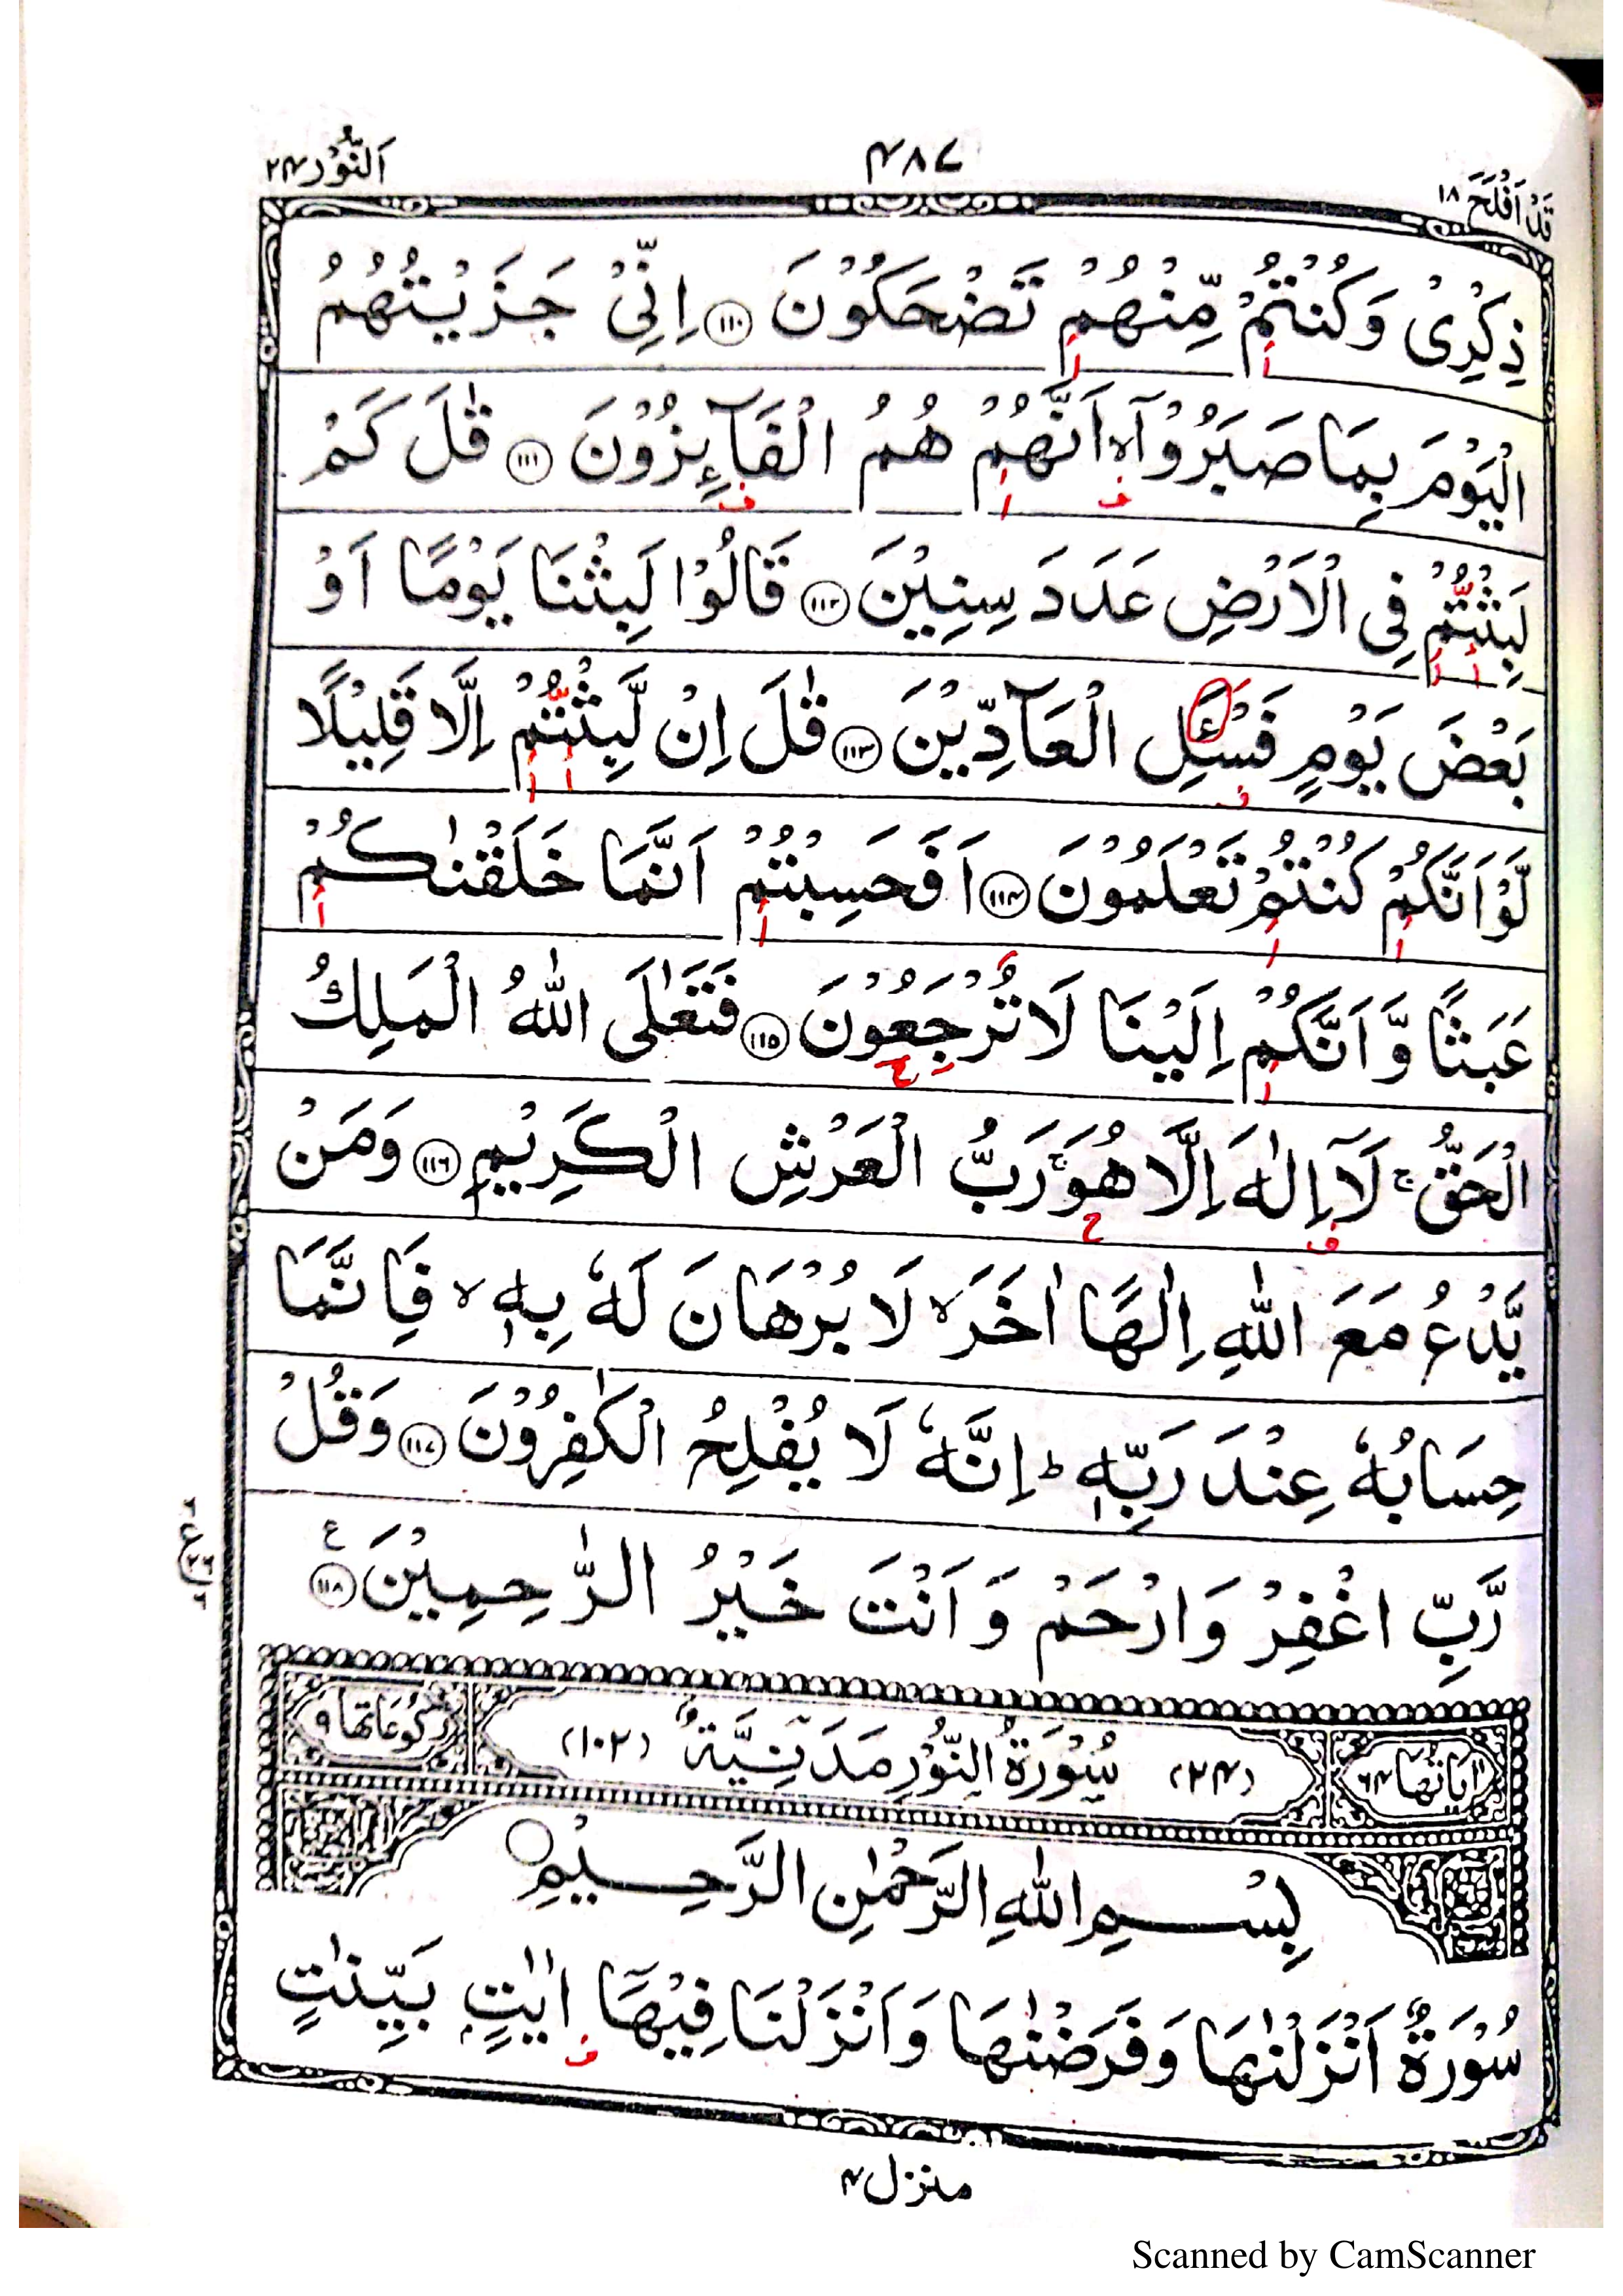 قَدْ اَفْلَحَ ۱۸
۴۸۷
اَلنُّوْر ۲۴
ذِكْرِىْ وَكُنْتُمْ مِّنْهُمْ تَضْحَكُوْنَ ۝۱۱۰ اِنِّىْ جَزَيْتُهُمُ
الْيَوْمَ بِمَا صَبَرُوْۤا ۙ اَنَّهُمْ هُمُ الْفَآئِزُوْنَ ۝۱۱۱ قٰلَ كَمْ
لَبِثْتُمْ فِى الْاَرْضِ عَدَدَ سِنِيْنَ ۝۱۱۲ قَالُوْا لَبِثْنَا يَوْمًا اَوْ
بَعْضَ يَوْمٍ فَسْـَٔلِ الْعَآدِّيْنَ ۝۱۱۳ قٰلَ اِنْ لَّبِثْتُمْ اِلَّا قَلِيْلًا
لَّوْ اَنَّكُمْ كُنْتُمْ تَعْلَمُوْنَ ۝۱۱۴ اَفَحَسِبْتُمْ اَنَّمَا خَلَقْنٰكُمْ
عَبَثًا وَّ اَنَّكُمْ اِلَيْنَا لَا تُرْجَعُوْنَ ۝۱۱۵ فَتَعٰلَى اللّٰهُ الْمَلِكُ
الْحَقُّ ۚ لَاۤ اِلٰهَ اِلَّا هُوَ ۚ رَبُّ الْعَرْشِ الْكَرِيْمِ ۝۱۱۶ وَمَنْ
يَّدْعُ مَعَ اللّٰهِ اِلٰهًا اٰخَرَ ۙ لَا بُرْهَانَ لَهٗ بِهٖ ۙ فَاِنَّمَا
حِسَابُهٗ عِنْدَ رَبِّهٖ ؕ اِنَّهٗ لَا يُفْلِحُ الْكٰفِرُوْنَ ۝۱۱۷ وَقُلْ
رَّبِّ اغْفِرْ وَارْحَمْ وَ اَنْتَ خَيْرُ الرّٰحِمِيْنَ ۝۱۱۸ ع
اٰيَاتُهَا ۶۴ (۲۴) سُوْرَةُ النُّوْرِ مَدَنِيَّةٌ (۱۰۲) رُكُوْعَاتُهَا ۹
بِسْمِ اللّٰهِ الرَّحْمٰنِ الرَّحِيْمِ
سُوْرَةٌ اَنْزَلْنٰهَا وَفَرَضْنٰهَا وَاَنْزَلْنَا فِيْهَاۤ اٰيٰتٍۭ بَيِّنٰتٍ
منزل ۴
Scanned by CamScanner